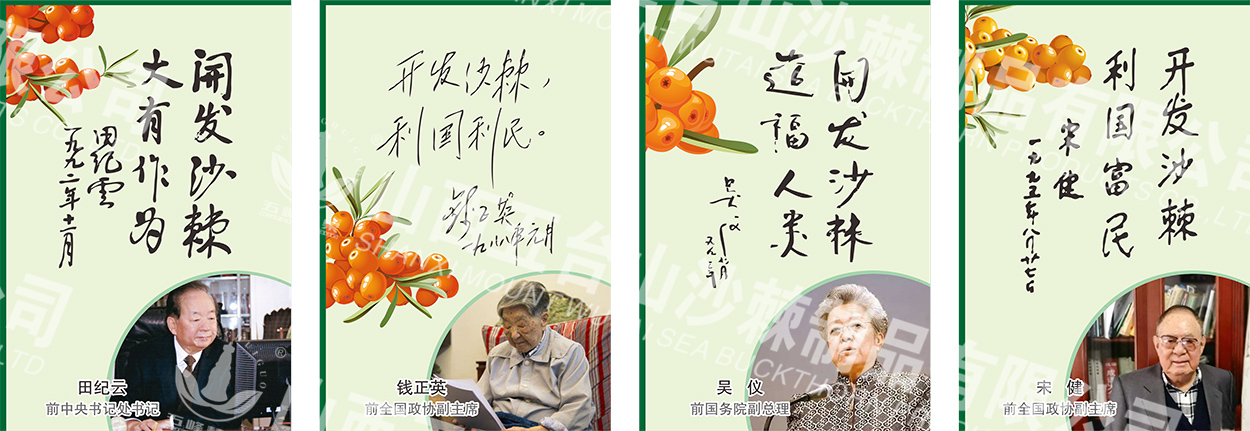 开发沙棘
大有作为
田纪云
一九九二年十二月
田纪云
前中央书记处书记
开发沙棘，
利国利民。
钱正英
一九八八年元月
钱正英
前全国政协副主席
开发沙棘
造福人类
吴仪
吴 仪
前国务院副总理
开发沙棘
利国富民
宋健
一九九五年八月廿七日
宋 健
前全国政协副主席